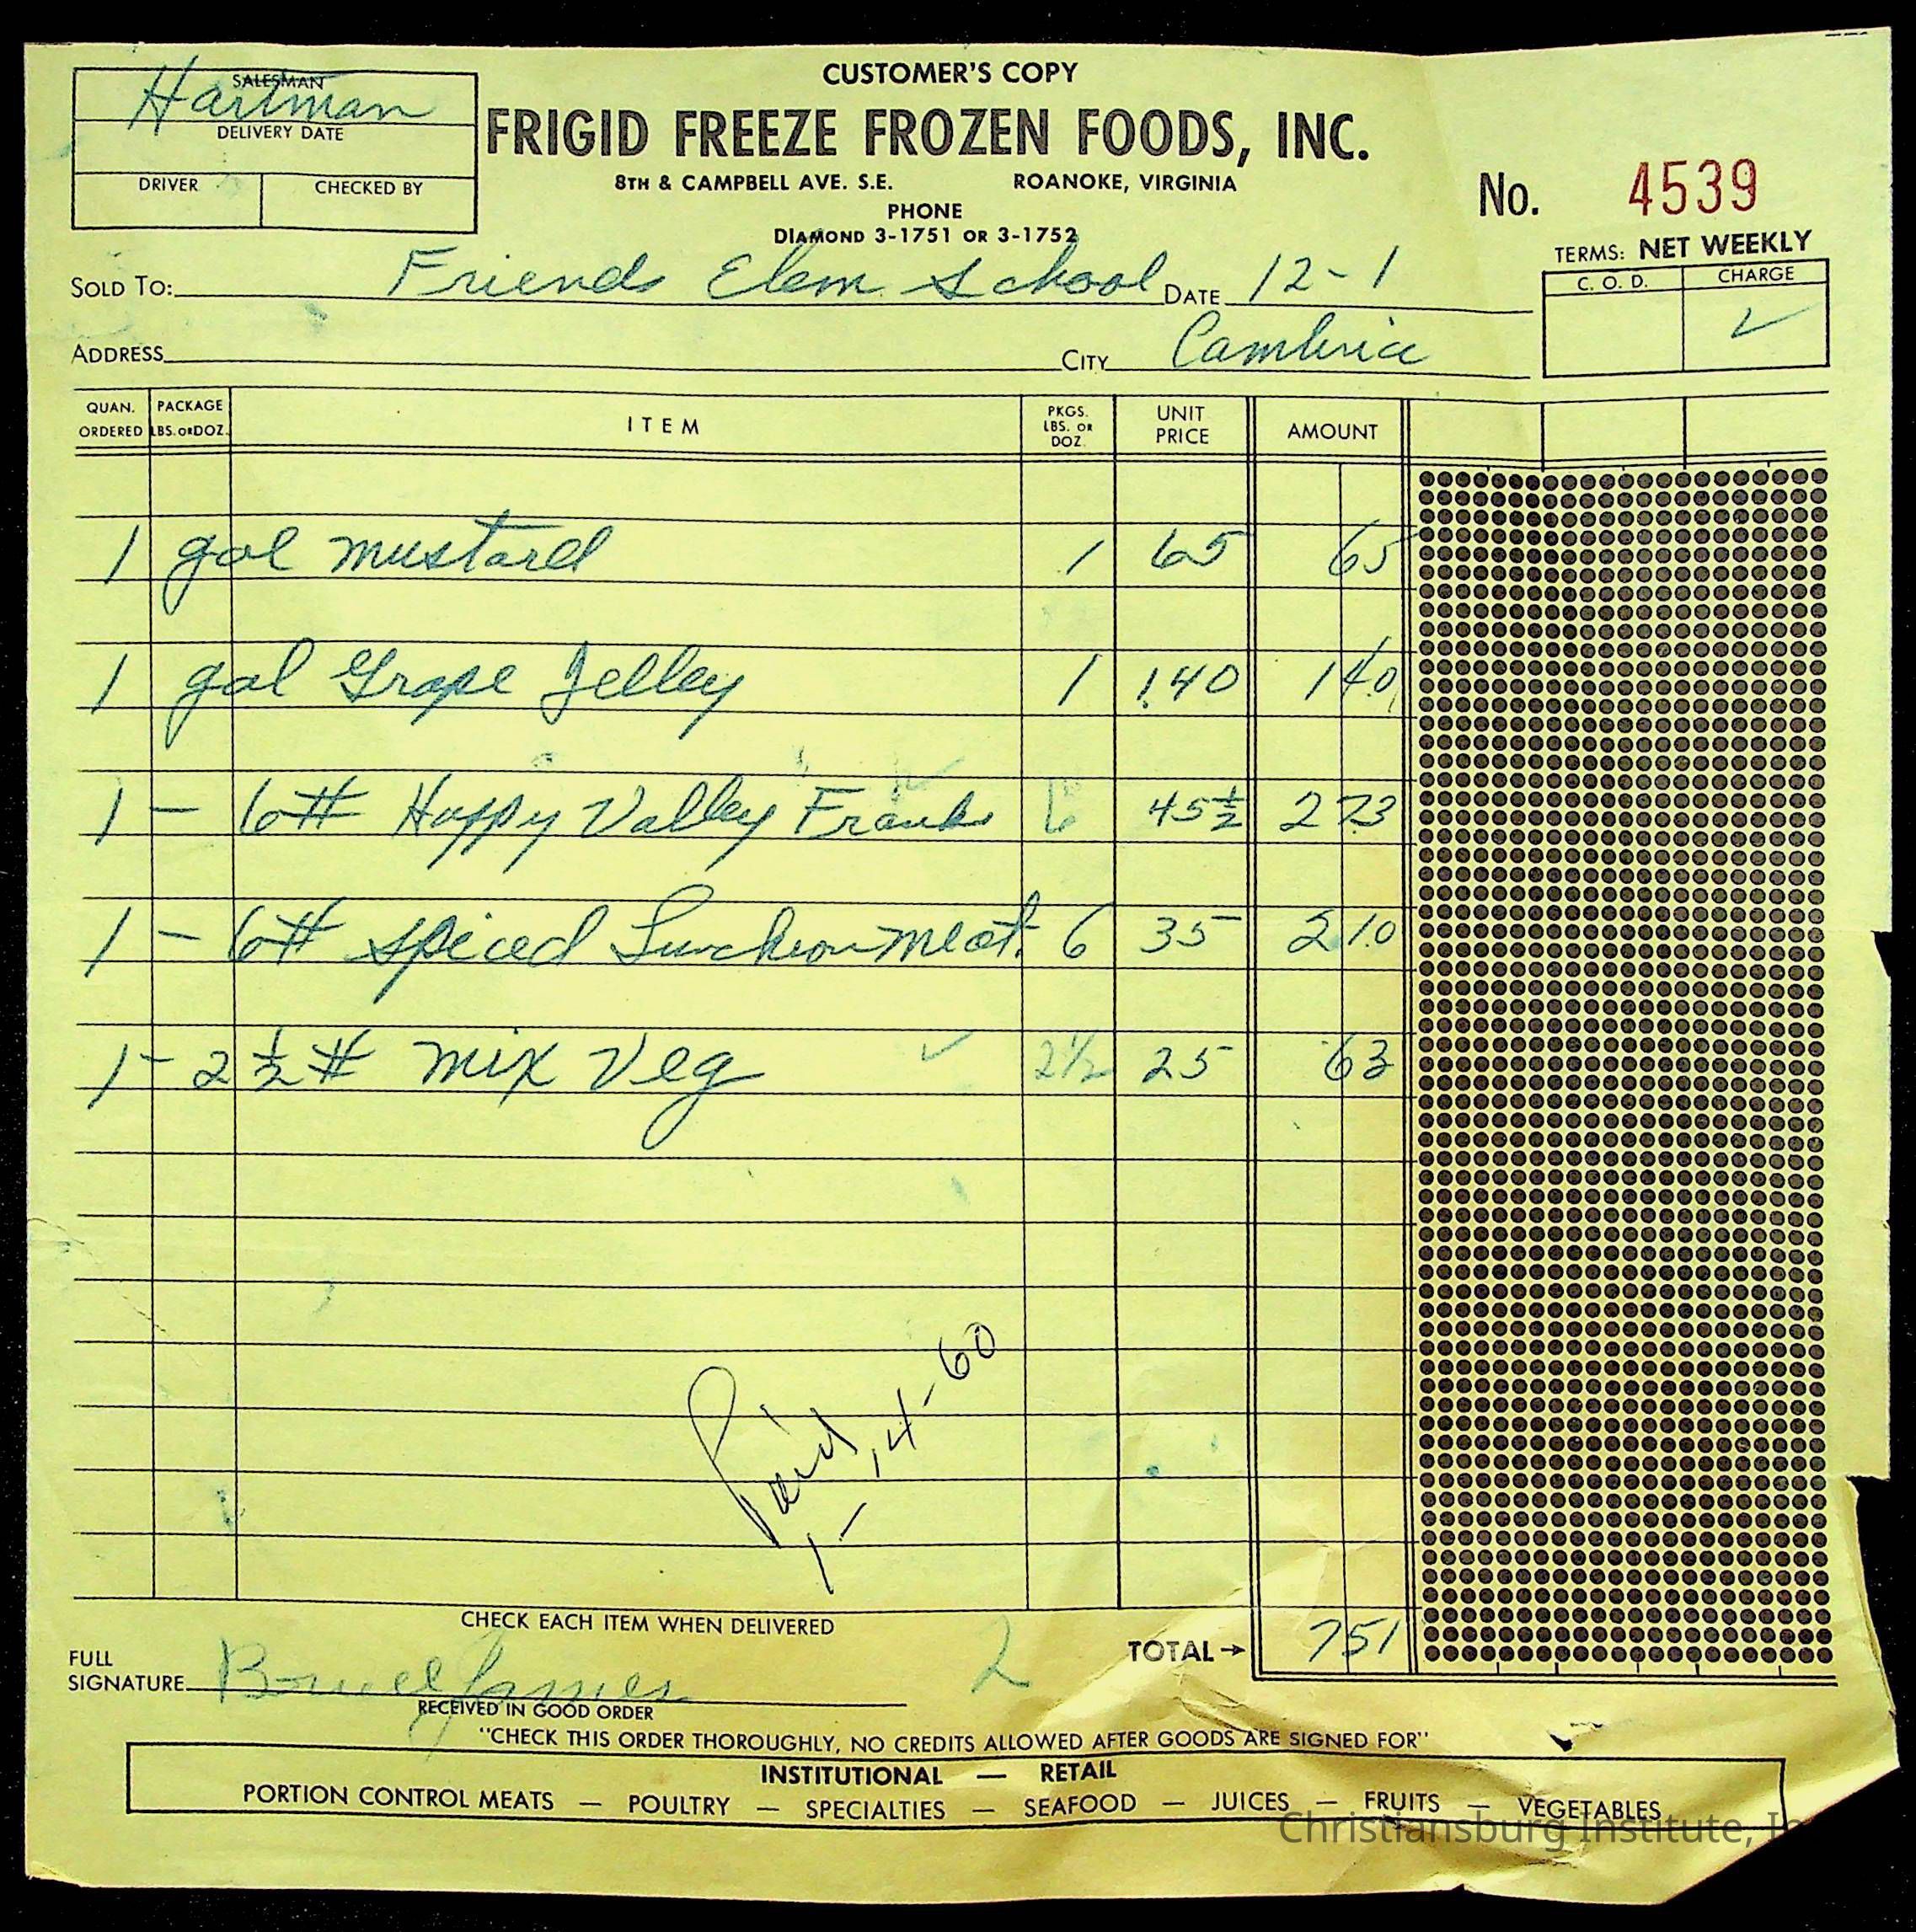 CUSTOMER'S COPY
SALESMAN
Hartman
DELIVERY DATE
DRIVER CHECKED BY
FRIGID FREEZE FROZEN FOODS, INC.
8TH & CAMPBELL AVE. S.E. ROANOKE, VIRGINIA
PHONE
DIAMOND 3-1751 OR 3-1752
No. 4539
TERMS: NET WEEKLY
C. O. D. CHARGE
✓
SOLD TO: Friends Elem School DATE 12-1
ADDRESS CITY Cambria
QUAN. ORDERED PACKAGE LBS. OR DOZ. ITEM PKGS. LBS. OR DOZ. UNIT PRICE AMOUNT
1 gal mustard 1 65 65
1 gal Grape Jelley 1 1.40 1 40
1 - 6# Happy Valley Franks 6 45½ 2 73
1 - 6# spiced Luncheon meat 6 35 2 10
1 - 2½# mix Veg ✓ 2½ 25 63
Paid
1-14-60
CHECK EACH ITEM WHEN DELIVERED
TOTAL → 7 51
FULL SIGNATURE James 2
RECEIVED IN GOOD ORDER
"CHECK THIS ORDER THOROUGHLY, NO CREDITS ALLOWED AFTER GOODS ARE SIGNED FOR"
INSTITUTIONAL — RETAIL
PORTION CONTROL MEATS — POULTRY — SPECIALTIES — SEAFOOD — JUICES — FRUITS — VEGETABLES
Christiansburg Institute,